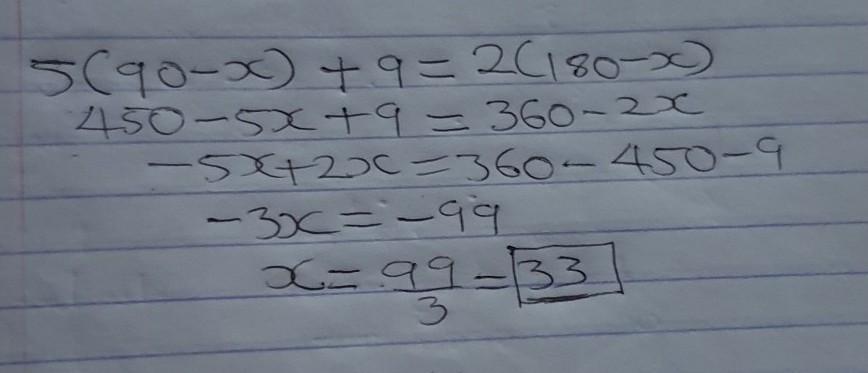 5(90-x) + 9 = 2(180-x)
450-5x+9 = 360-2x
-5x+2x=360-450-9
-3x=-99
x= 99/3 = 33